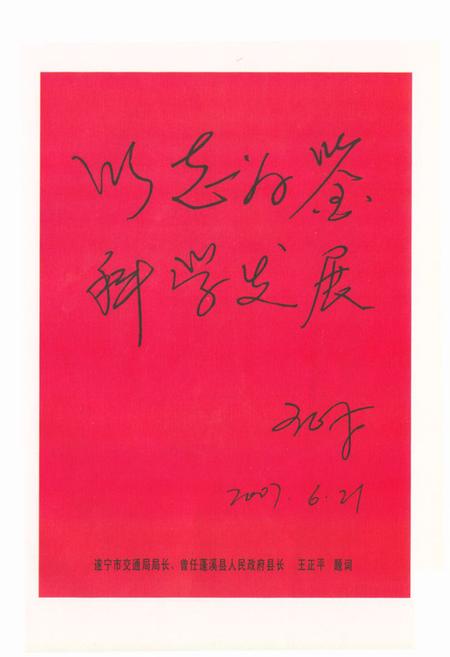 以志为鉴
科学发展
王正平
2007.6.21
遂宁市交通局局长、曾任蓬溪县人民政府县长 王正平 题词